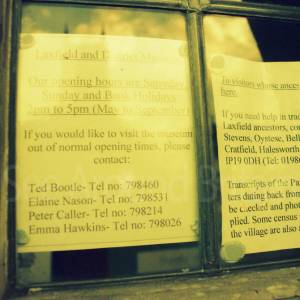 Laxfield and District
Our opening hours are Saturday,
Sunday and Bank Holidays
2pm to 5pm (May to September)
If you would like to visit the museum
out of normal opening times, please
contact:
Ted Bootle- Tel no: 798460
Elaine Nason- Tel no: 798531
Peter Caller- Tel no: 798214
Emma Hawkins- Tel no: 798026
To visitors whose
here.
If you need help in
Laxfield ancestors,
Stevens, Oyntese,
Cratfield, Halesworth
IP19 0DH (Tel:
Transcripts of the
ters dating back from
be checked and
plied. Some census
the village are also